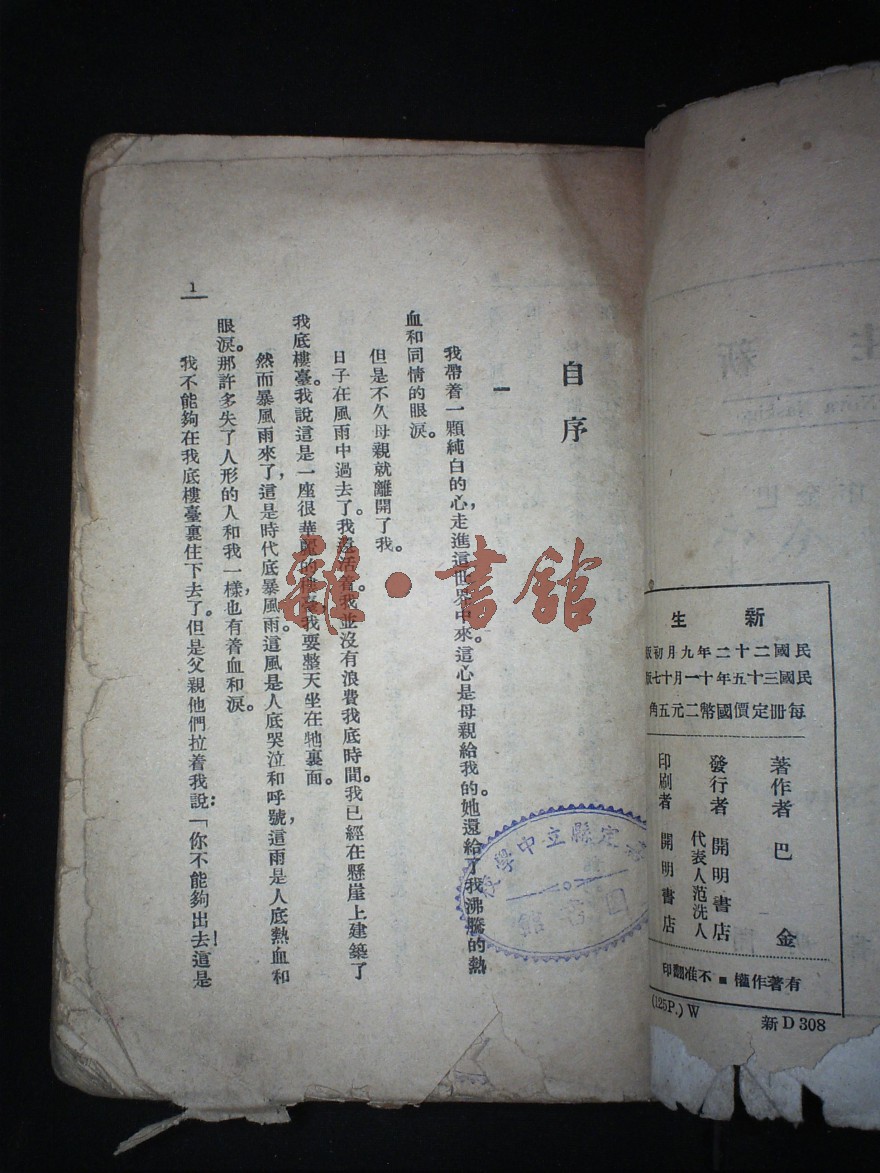 新生
民國二十二年九月初版
民國三十五年十一月十七版
每冊定價國幣二元五角
著作者 巴金
發行者 開明書店
代表人范洗人
印刷者 開明書店
有著作權■不准翻印
(125P.) W
新 D 308
自序
一
我帶着一顆純白的心，走進這世界中來。這心是母親給我的。她還給了我沸騰的熱
血和同情的眼淚。
但是不久母親就離開了我。
日子在風雨中過去了。我活着。我並沒有浪費我底時間。我已經在懸崖上建築了
我底樓臺。我說這是一座很華麗的樓臺，我要整天坐在牠裏面。
然而暴風雨來了，這是時代底暴風雨。這風是人底哭泣和呼號，這雨是人底熱血和
眼淚。那許多失了人形的人和我一樣，也有着血和淚。
我不能夠在我底樓臺裏住下去了。但是父親他們拉着我說：「你不能夠出去！這是
1
定縣立中學校
圖書館
雜·書館